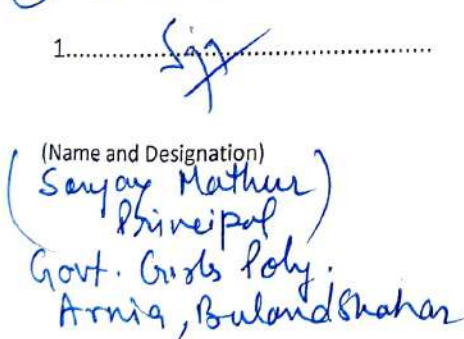 1..............................................................
(Name and Designation)
(Sanjay Mathur)
Principal
Govt. Girls Poly.
Arnia, Bulandshahar